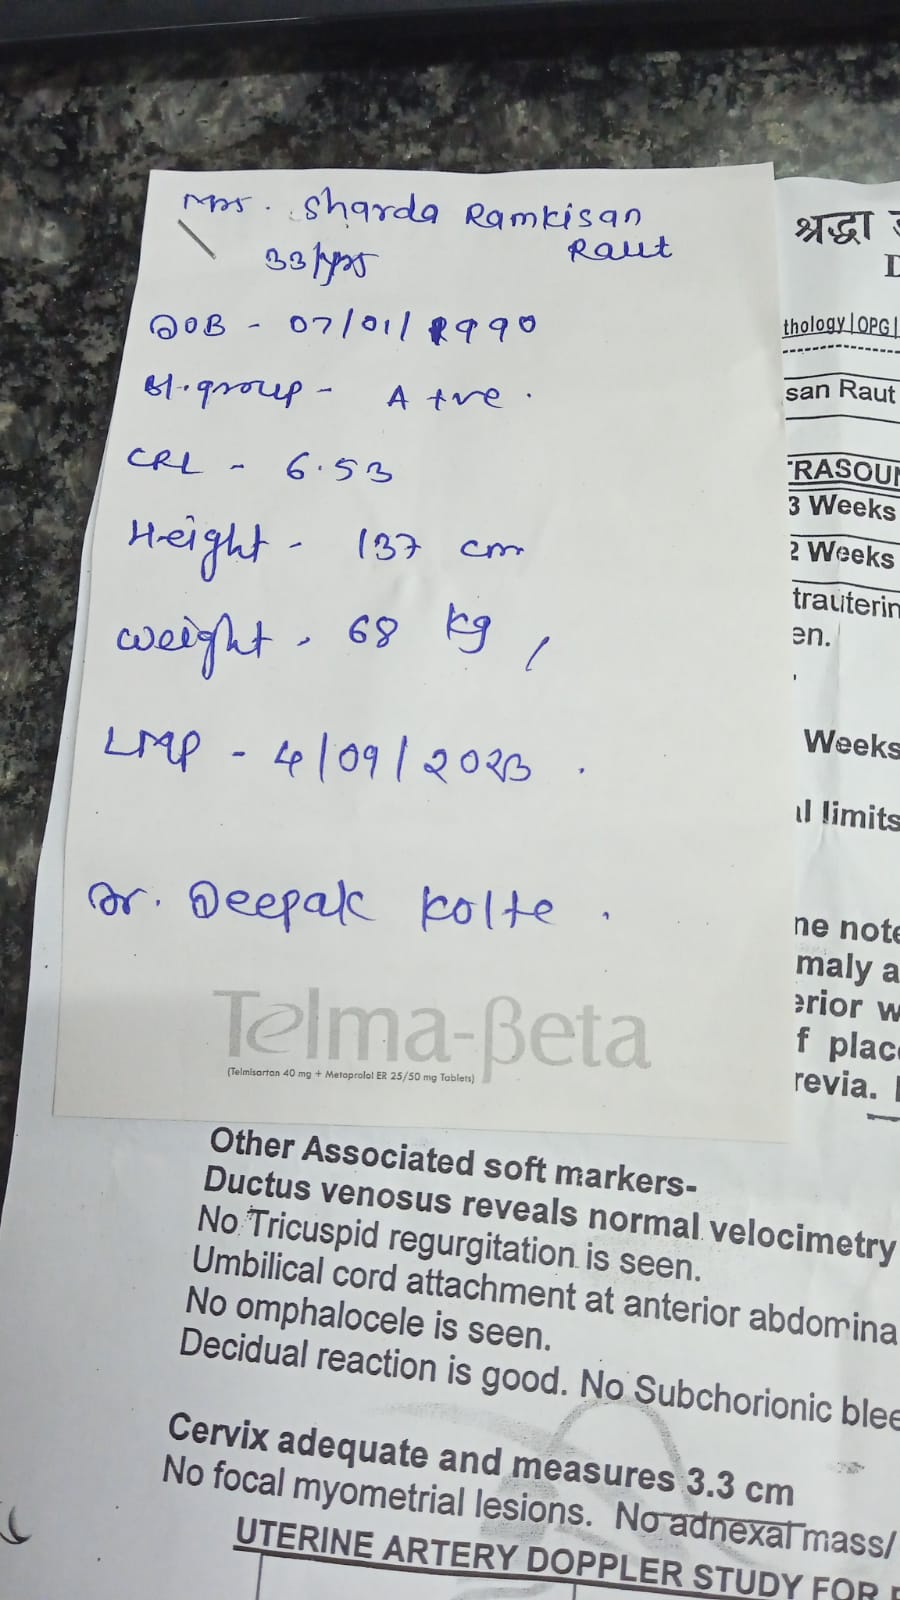 Mrs. Sharda Ramkisan
Raut
33/yrs
DOB - 07/01/1990
Bl.group - A +ve.
CRL - 6.53
Height - 137 cm
weight - 68 kg,
LMP - 4/09/2023.
Dr. Deepak Kolte.
Telma-βeta
(Telmisartan 40 mg + Metoprolol ER 25/50 mg Tablets)
श्रद्धा
thology|OPG|
san Raut
3 Weeks
2 Weeks
en.
Weeks
limits
note
f
Other Associated soft markers-
Ductus venosus reveals normal velocimetry
No Tricuspid regurgitation is seen.
Umbilical cord attachment at anterior abdomina
No omphalocele is seen.
Decidual reaction is good. No Subchorionic blee
Cervix adequate and measures 3.3 cm
No focal myometrial lesions. No adnexal mass/
UTERINE ARTERY DOPPLER STUDY FOR